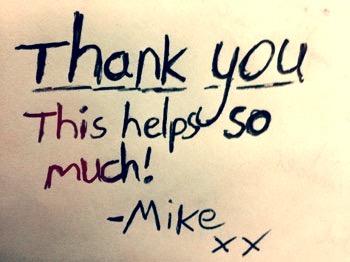 Thank you
This helps so
much!
-Mike
xx